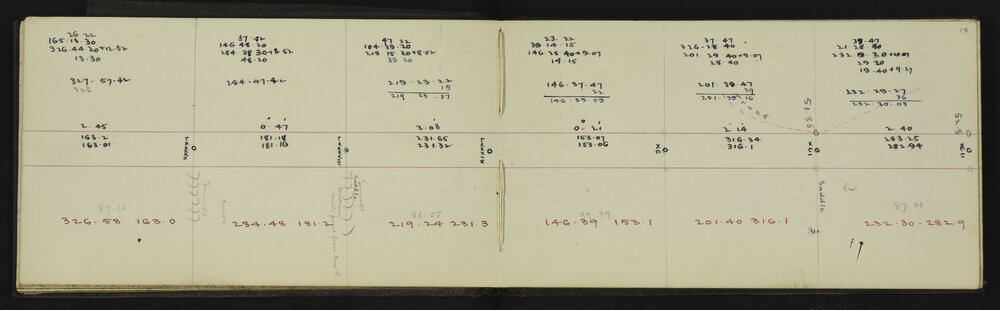 18
26 22
165.13.30
326.44 20+12.52
13.30
327. 57.42
326
2. 45
163.2
163.01
LXXXVII
87.16
326.58 163.0
57.42
146 48 20
284 38 30+8.52
48.20
284.47.42
0. 47
181.18
181.16
284.48 181.2
47 22
104.39.20
219 15 20+8.02
39 20
219.23.22
15
219.23.37
3.03
231.65
231.32
LXXXIX
Saddle
86.58
219.24 231.3
23.22
39 14.15
146 28 40+9.07
14.15
146.37.47
22
146.39.09
0. 21
153.07
153.06
XC
89.39
146.39 153.1
37 47
326.28 40
201 29 40+9.07
28.40
201.38.47
29
201.39 16
2 14
316.34
316.1
51.55
XCI
Saddle
201.40 316.1
39.47
21.28 40
29 20
19.40+9.27
232.29.27
36
232.20.03
2. 40
283.25
282.94
XCII
87.21
232.30-282.9
19